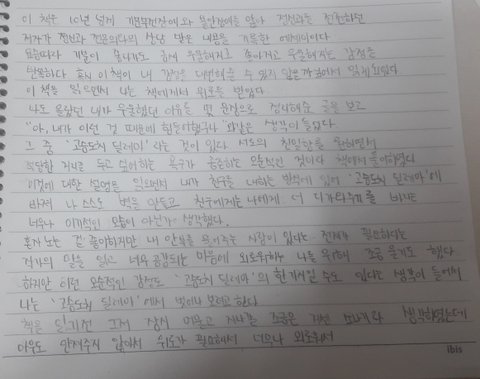 이 책은 10년 넘게 기분부전장애와 불안장애를 앓아 정신과를 전전하던
저자가 정신과 전문의와의 상담 받은 내용을 기록한 에세이이다
요즘따라 기분이 좋다가도 금세 우울해지고 좋아지고 우울해지는 감정을
반복하다 혹시 이 책이 내 감정을 대변해줄 수 있지 않을까 해서 읽게 되었다
이 책을 읽으면서 나는 책에게서 위로를 받았다
나도 몰랐던 내가 우울했던 이유를 몇 문장으로 정리해둔 글을 보고
'아, 내가 이런 것 때문에 힘들어했구나' 와닿은 생각이 들었다
그 중 '고슴도치 딜레마' 라는 것이 있다 서로의 친밀함을 원하면서
적당한 거리를 두고 싶어하는 욕구가 공존하는 모순적인 것이다 책에서 줄이하였다
이것에 대한 설명을 읽으면서 내가 친구를 대하는 방식에 있어 '고슴도치 딜레마'에
빠져 나 스스로 벽을 만들고 친구에게는 나에게 더 다가와주기를 바라는
너무나 이기적인 모습이 아닌가 생각했다.
혼자 노는 걸 좋아하지만 내 안부를 물어주는 사람이 있다는 전제가 필요하다는
작가의 말을 읽고 너무 공감되는 마음에 외로워하는 나를 위해 조금 울기도 했다
하지만 이런 모순적인 감정도 '고슴도치 딜레마'의 한가지일 수도 있다는 생각이 들어서
나는 '고슴도치 딜레마'에서 벗어나 보려고 한다
책을 읽기전 그저 잠시 머물고 지나갈 조금은 거센 소나기라 생각하였는데
아무도 안아주지 않아서 위로가 필요해서 너무나 외로워서
ibis